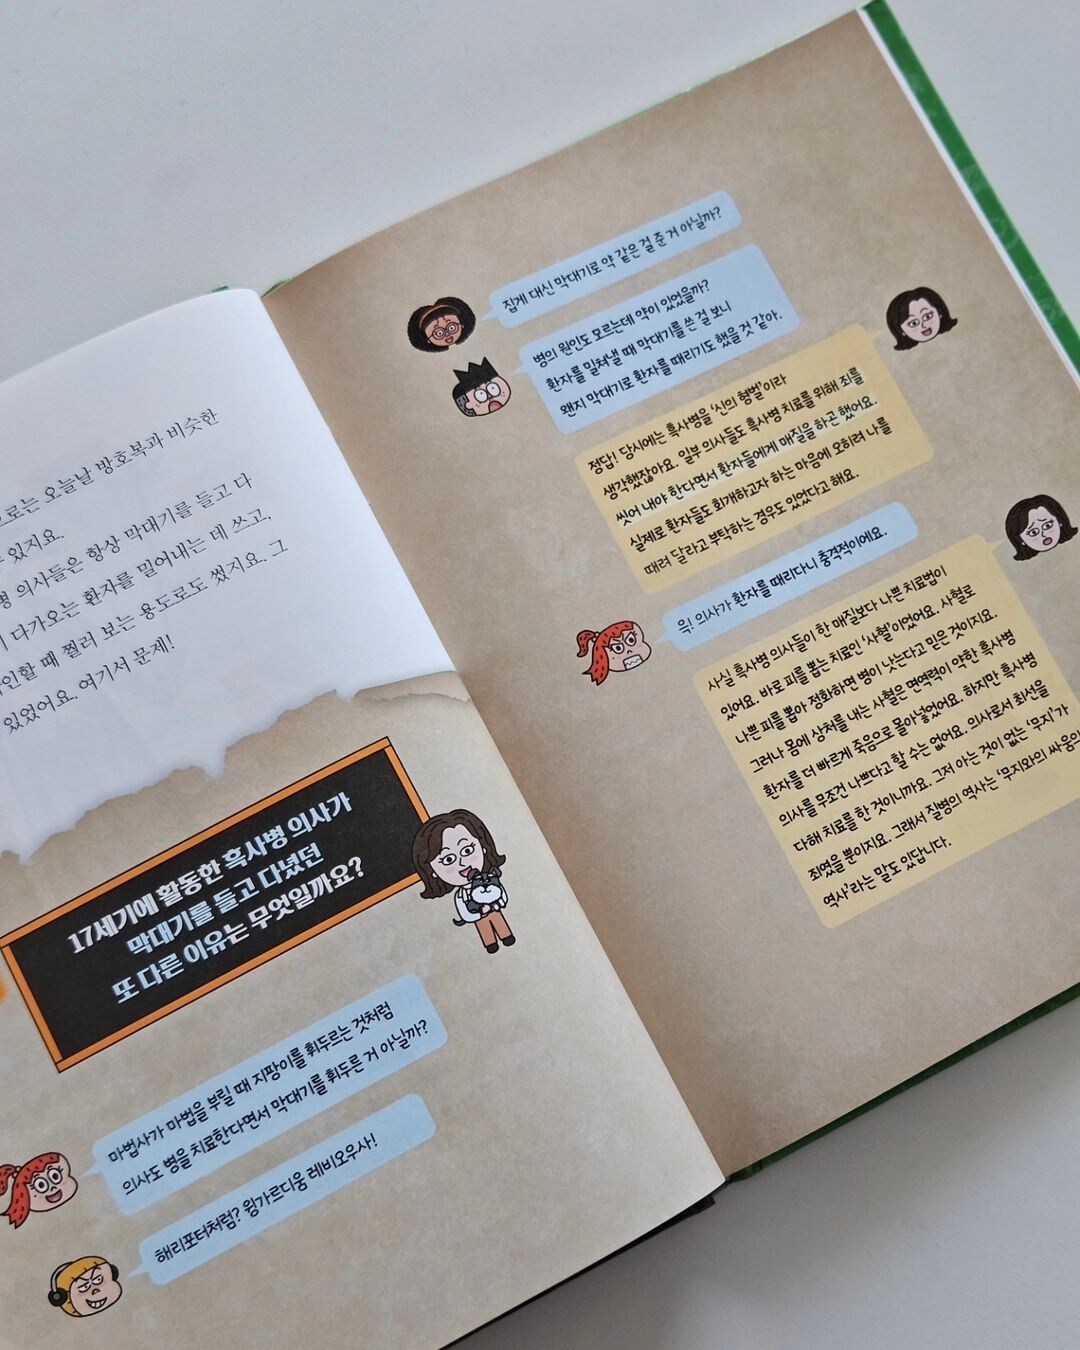 로는 오늘날 방호복과 비슷한
있지요.
병 의사들은 항상 막대기를 들고 다
다가오는 환자를 밀어내는 데 쓰고,
인할 때 찔러 보는 용도로도 썼지요. 그
있었어요. 여기서 문제!
17세기에 활동한 흑사병 의사가
막대기를 들고 다녔던
또 다른 이유는 무엇일까요?
마법사가 마법을 부릴 때 지팡이를 휘두르는 것처럼
의사도 병을 치료한다면서 막대기를 휘두른 거 아닐까?
해리포터처럼? 윙가르디움 레비오우사!
집게 대신 막대기로 약 같은 걸 준 거 아닐까?
병의 원인도 모르는데 약이 있었을까?
환자를 밀쳐낼 때 막대기를 쓴 걸 보니
왠지 막대기로 환자를 때리기도 했을 것 같아.
정답! 당시에는 흑사병을 '신의 형벌'이라
생각했잖아요. 일부 의사들도 흑사병 치료를 위해 죄를
씻어 내야 한다면서 환자들에게 매질을 하곤 했어요.
실제로 환자들도 회개하고자 하는 마음에 오히려 나를
때려 달라고 부탁하는 경우도 있었다고 해요.
윽! 의사가 환자를 때리다니 충격적이에요.
사실 흑사병 의사들이 한 매질보다 나쁜 치료법이
있어요. 바로 피를 뽑는 치료인 '사혈'이었어요. 사혈로
나쁜 피를 뽑아 정화하면 병이 낫는다고 믿은 것이지요.
그러나 몸에 상처를 내는 사혈은 면역력이 약한 흑사병
환자를 더 빠르게 죽음으로 몰아넣었어요. 하지만 흑사병
의사를 무조건 나쁘다고 할 수는 없어요. 의사로서 최선을
다해 치료를 한 것이니까요. 그저 아는 것이 없는 '무지'가
죄였을 뿐이지요. 그래서 질병의 역사는 '무지와의 싸움의
역사'라는 말도 있답니다.